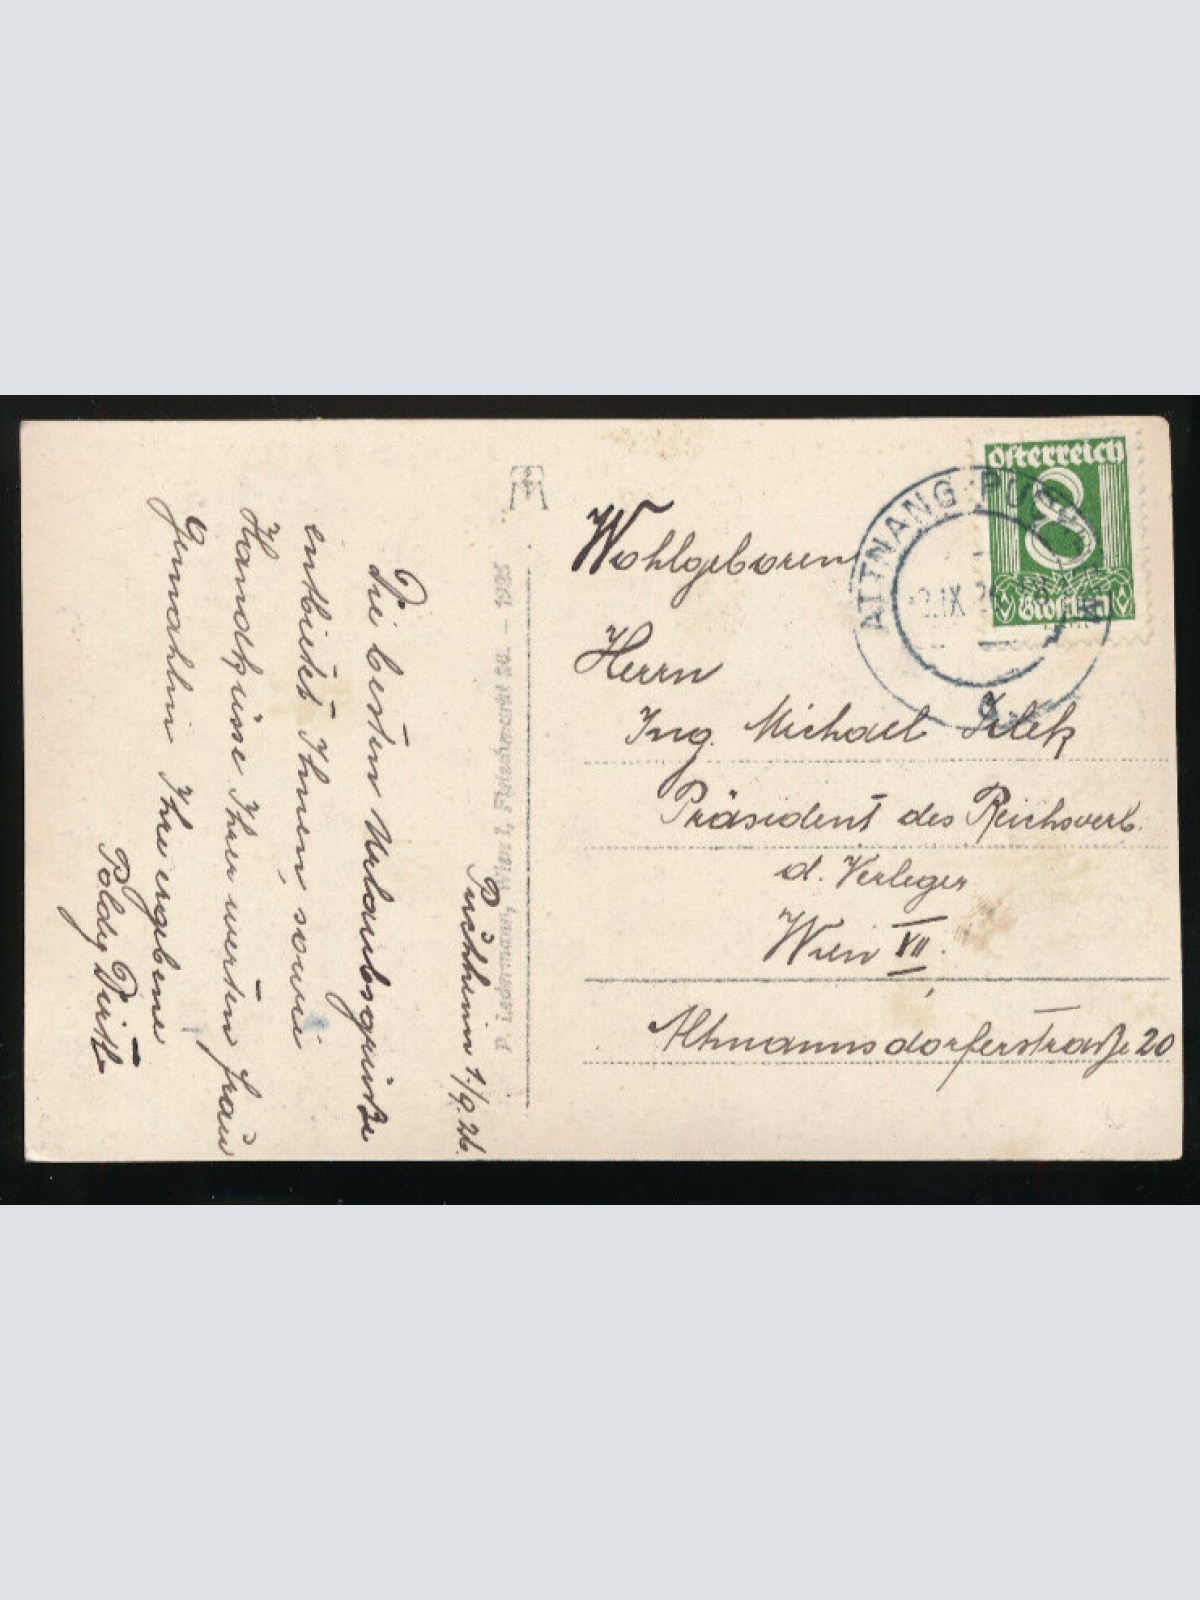 Puchheim 1./9.26.
Die besten Urlaubsgrüße
entbietet Ihnen, sowie
Handküsse Ihrer werten Frau
Gemahlin Ihre ergebene
Poldy
P. Ledermann, Wien I, Fleischmarkt 20. - 1925
österreich
8
Groschen
ATTNANG-PUCHHEIM
2.IX.26
Wohlgeboren
Herrn
Ing. Michael Jilek
Präsident des Reichsverb.
d. Verleger
Wien XII.
Altmannsdorferstraße 20